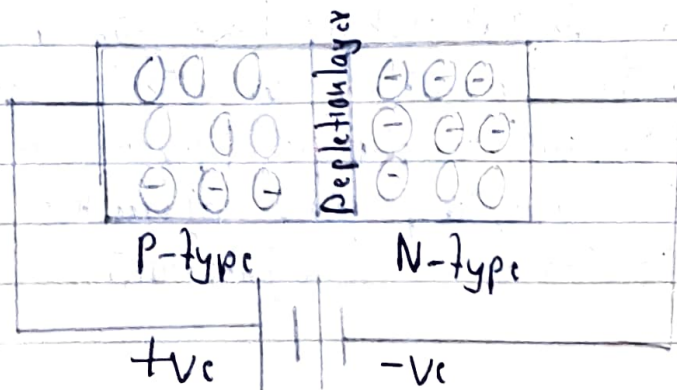 Depletion layer
P-type
N-type
+ve
-ve